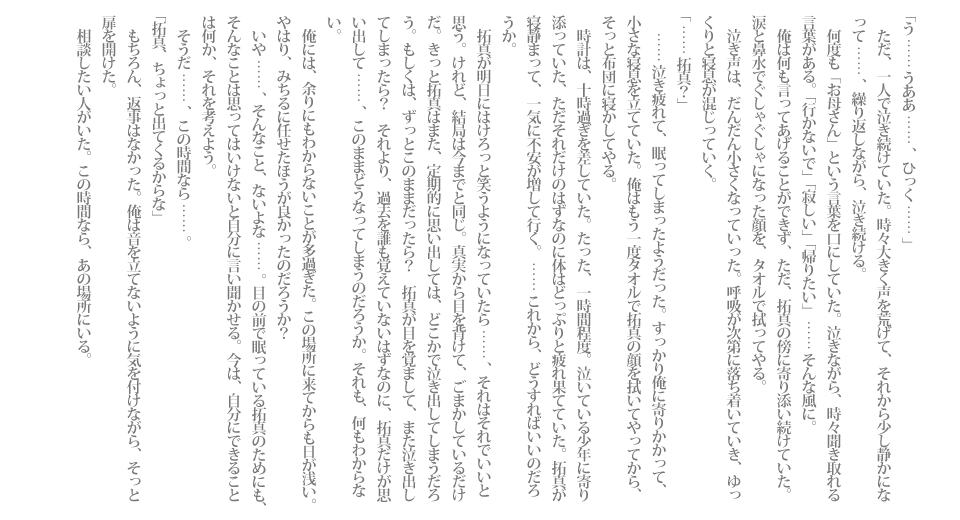 「う……うああ……、ひっく……」
　ただ、一人で泣き続けていた。時々大きく声を荒げて、それから少し静かにな
って……、繰り返しながら、泣き続ける。
　何度も「お母さん」という言葉を口にしていた。泣きながら、時々聞き取れる
言葉がある。「行かないで」「寂しい」「帰りたい」……そんな風に。
　俺は何も言ってあげることができず、ただ、拓真の傍に寄り添い続けていた。
涙と鼻水でぐしゃぐしゃになった顔を、タオルで拭ってやる。
　泣き声は、だんだん小さくなっていった。呼吸が次第に落ち着いていき、ゆっ
くりと寝息が混じっていく。
「……拓真？」
　……泣き疲れて、眠ってしまったようだった。すっかり俺に寄りかかって、
小さな寝息を立てていた。俺はもう一度タオルで拓真の顔を拭いてやってから、
そっと布団に寝かしてやる。
　時計は、十時過ぎを差していた。たった、一時間程度。泣いている少年に寄り
添っていた、ただそれだけのはずなのに体はどっぷりと疲れ果てていた。拓真が
寝静まって、一気に不安が増して行く。……これから、どうすればいいのだろ
うか。
　拓真が明日にはけろっと笑うようになっていたら……、それはそれでいいと
思う。けれど、結局は今までと同じ。真実から目を背けて、ごまかしているだけ
だ。きっと拓真はまた、定期的に思い出しては、どこかで泣き出してしまうだろ
う。もしくは、ずっとこのままだったら？　拓真が目を覚まして、また泣き出し
てしまったら？　それより、過去を誰も覚えていないはずなのに、拓真だけが思
い出して……、このままどうなってしまうのだろうか。それも、何もわからな
い。
　俺には、余りにもわからないことが多過ぎた。この場所に来てからも日が浅い。
やはり、みちるに任せたほうが良かったのだろうか？
　いや……、そんなこと、ないよな……。目の前で眠っている拓真のためにも、
そんなことは思ってはいけないと自分に言い聞かせる。今は、自分にできること
は何か、それを考えよう。
　そうだ……、この時間なら……。
「拓真、ちょっと出てくるからな」
　もちろん、返事はなかった。俺は音を立てないように気を付けながら、そっと
扉を開けた。
　相談したい人がいた。この時間なら、あの場所にいる。